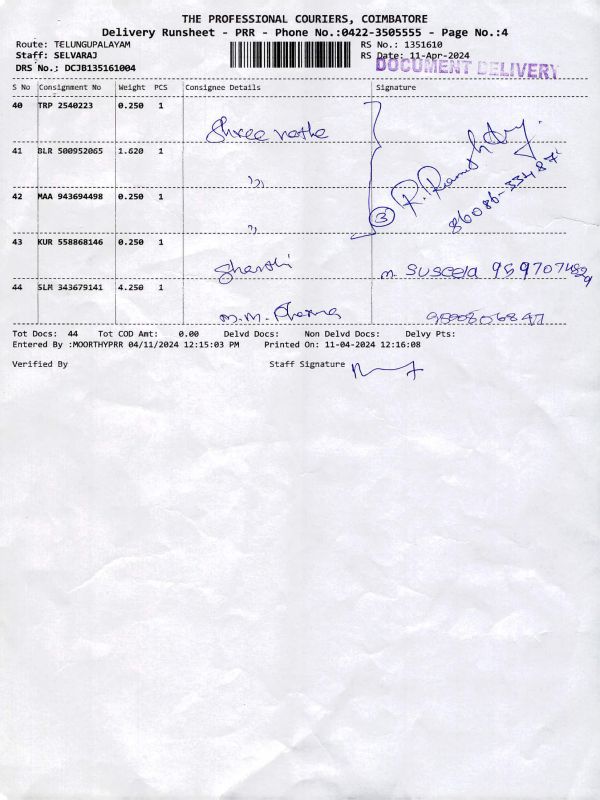 THE PROFESSIONAL COURIERS, COIMBATORE
Delivery Runsheet - PRR - Phone No.:0422-3505555 - Page No.:4
Route: TELUNGUPALAYAM RS No.: 1351610
Staff: SELVARAJ RS Date: 11-Apr-2024
DRS No.: DCJB135161004 DOCUMENT DELIVERY
S No Consignment No Weight PCS Consignee Details Signature
40 TRP 2540223 0.250 1
Shree
41 BLR 500952065 1.620 1
,,
42 MAA 943694498 0.250 1
3
,,
43 KUR 558868146 0.250 1
Shanthi M. Suseela
44 SLM 343679141 4.250 1
M.M. Pharma
Tot Docs: 44 Tot COD Amt: 0.00 Delvd Docs: Non Delvd Docs: Delvy Pts:
Entered By :MOORTHYPRR 04/11/2024 12:15:03 PM Printed On: 11-04-2024 12:16:08
Verified By Staff Signature